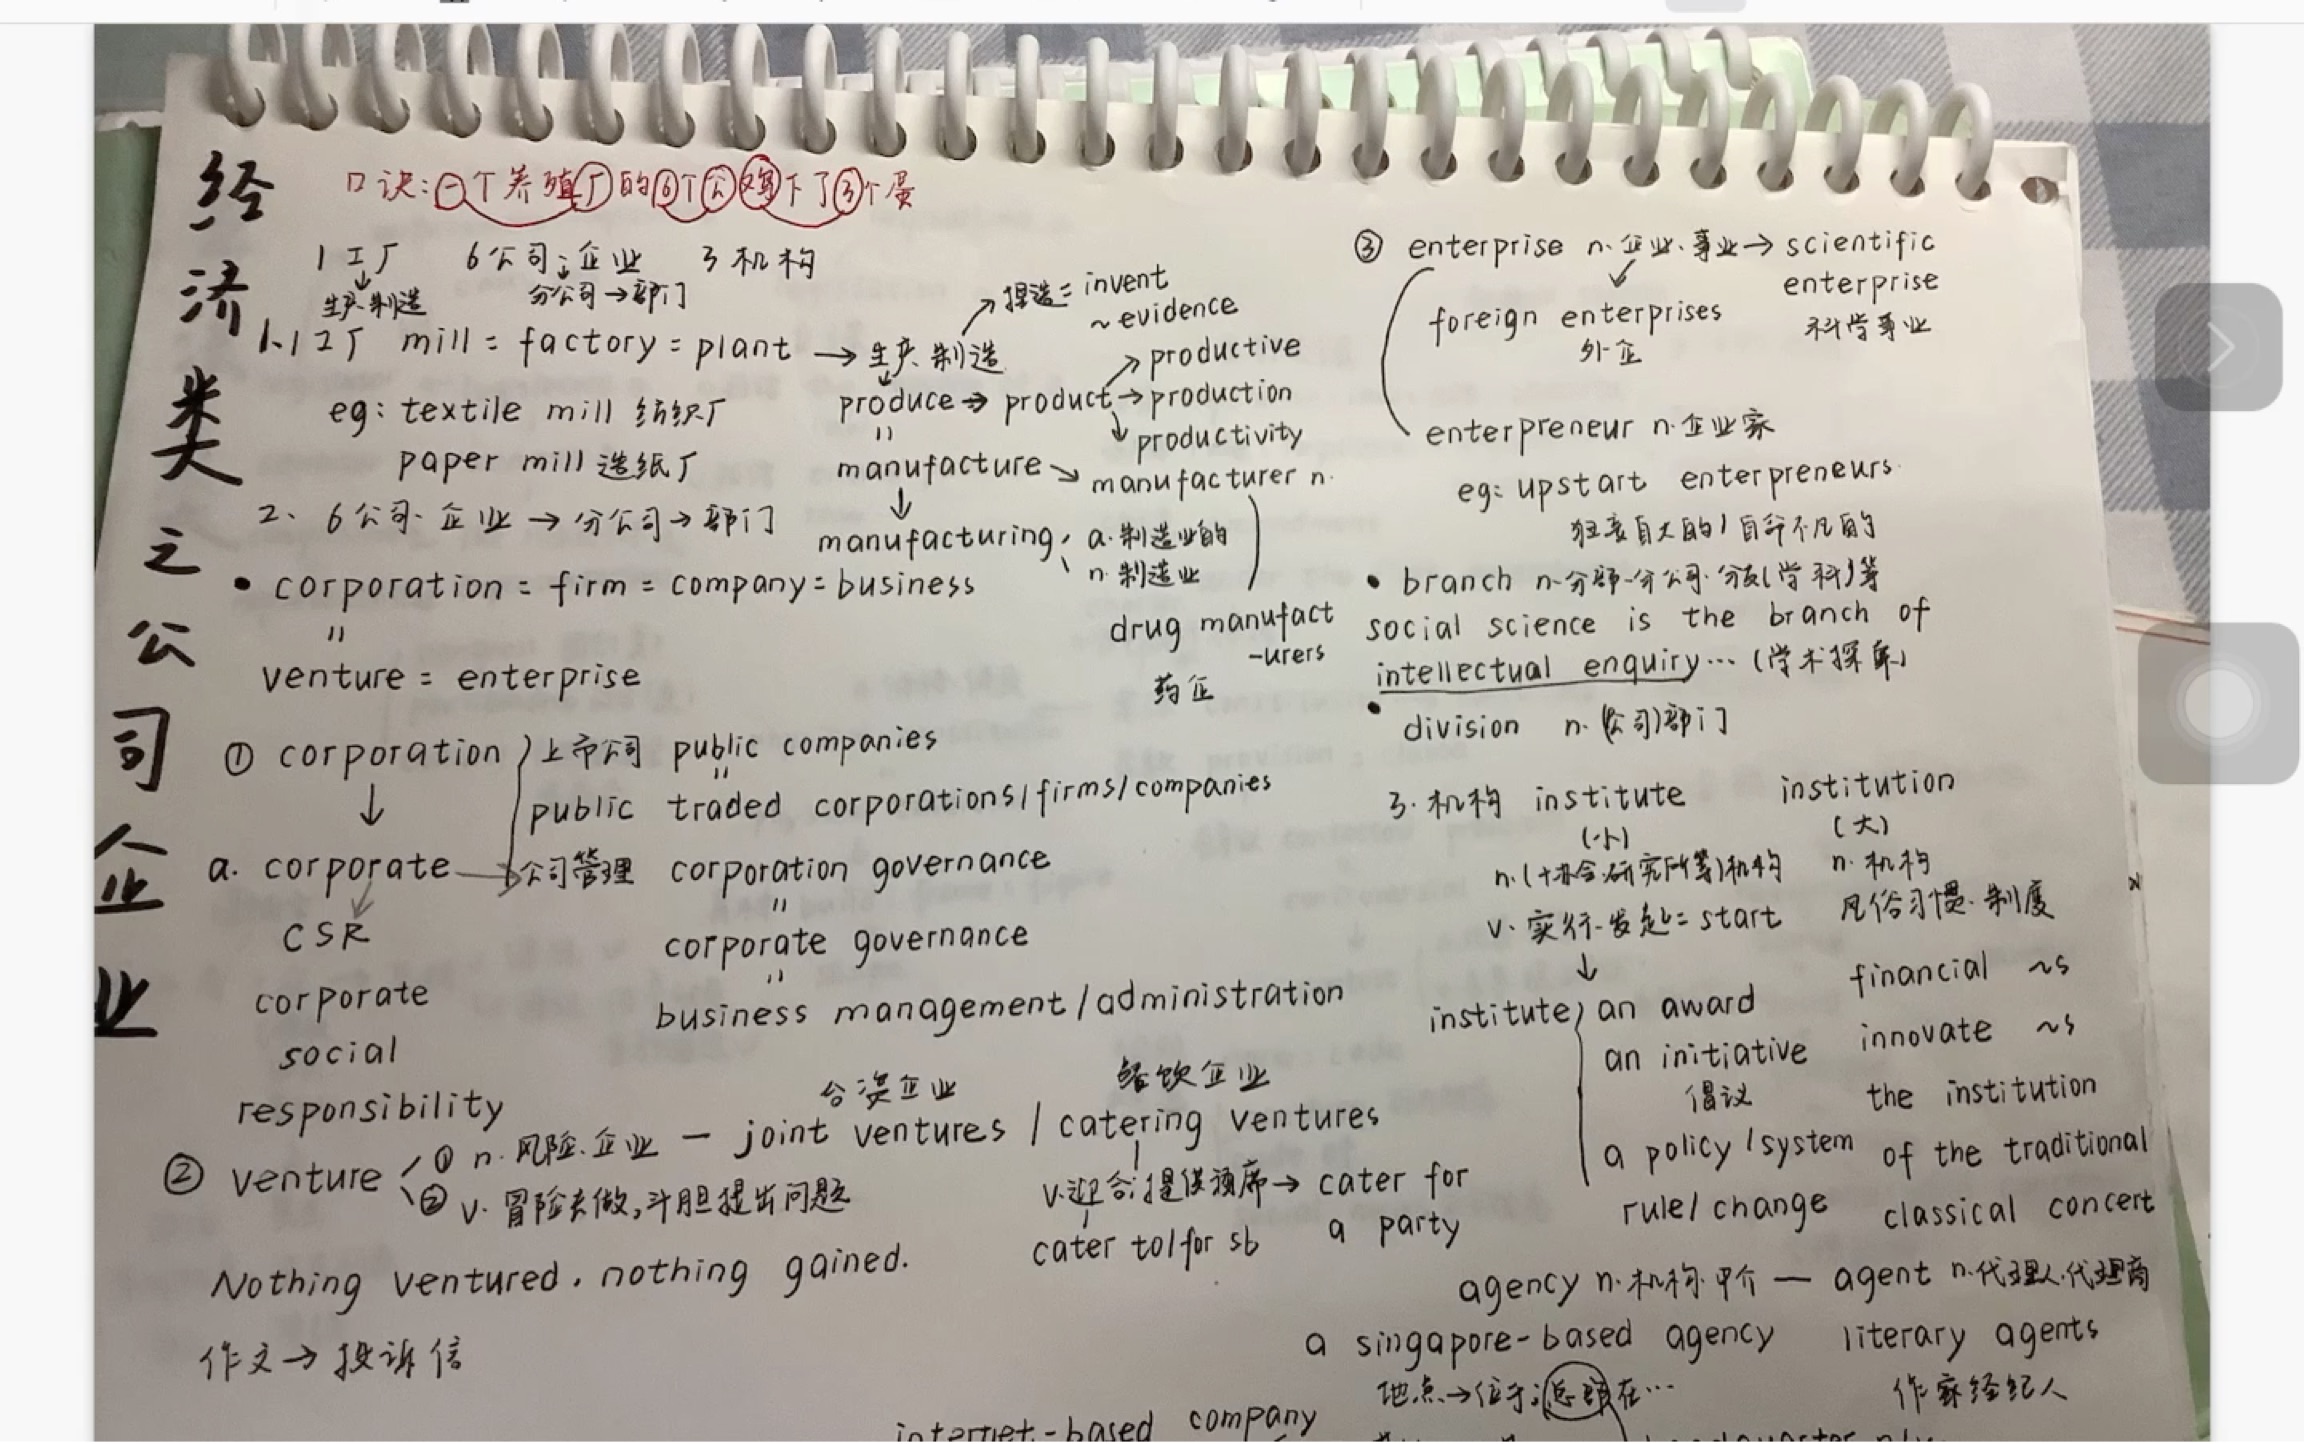 经济类之公司企业
口诀:一个养殖厂的6个公鸡下了3个蛋
1工厂 6公司;企业 3机构
生产.制造 分公司→部门
1.1工厂 mill = factory = plant → 生产.制造
↗捏造= invent
~ evidence
eg: textile mill 纺织厂
paper mill 造纸厂
produce → product → production
↗ productive
↓ productivity
"
manufacture ↘ manufacturer n.
↓
manufacturing, a.制造业的
n.制造业
drug manufact
-urers
药企
2、6公司.企业 → 分公司→部门
• corporation = firm = company = business
"
venture = enterprise
① corporation 上市公司 public companies
"
public traded corporations/firms/companies
↓
a. corporate → 公司管理 corporation governance
"
corporate governance
"
business management/administration
CSR
corporate
social
responsibility
合资企业 餐饮企业
② venture ① n.风险.企业 — joint ventures / catering ventures
② v.冒险去做,斗胆提出问题
v.迎合;提供酒席→ cater for
a party
cater to/for sb
Nothing ventured, nothing gained.
作文→投诉信
internet-based company
③ enterprise n.企业.事业→ scientific
enterprise
科学事业
foreign enterprises
外企
enterpreneur n.企业家
eg: upstart enterpreneurs.
狂妄自大的/自命不凡的
• branch n.分部.分公司.分支(学科)等
social science is the branch of
intellectual enquiry…(学术探究)
• division n.(公司)部门
3.机构 institute institution
(小) (大)
n.(协会.研究所等)机构 n.机构
v.实行.发起= start 风俗习惯.制度
↓
institute an award
an initiative
倡议
a policy/system
rule/change
financial ~s
innovate ~s
the institution
of the traditional
classical concert
agency n.机构.中介 — agent n.代理人.代理商
a singapore-based agency literary agents
地点→位于;总部在… 作家经纪人